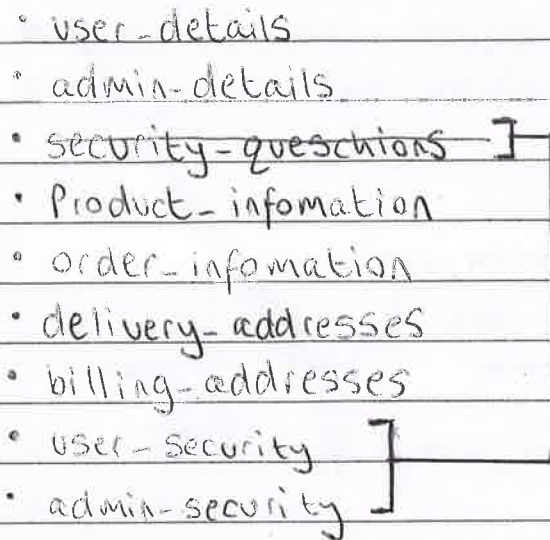 • user_details
• admin-details
• security-queschions
• Product_infomation
• order_infomation
• delivery_addresses
• billing_addresses
• user-security
• admin-security